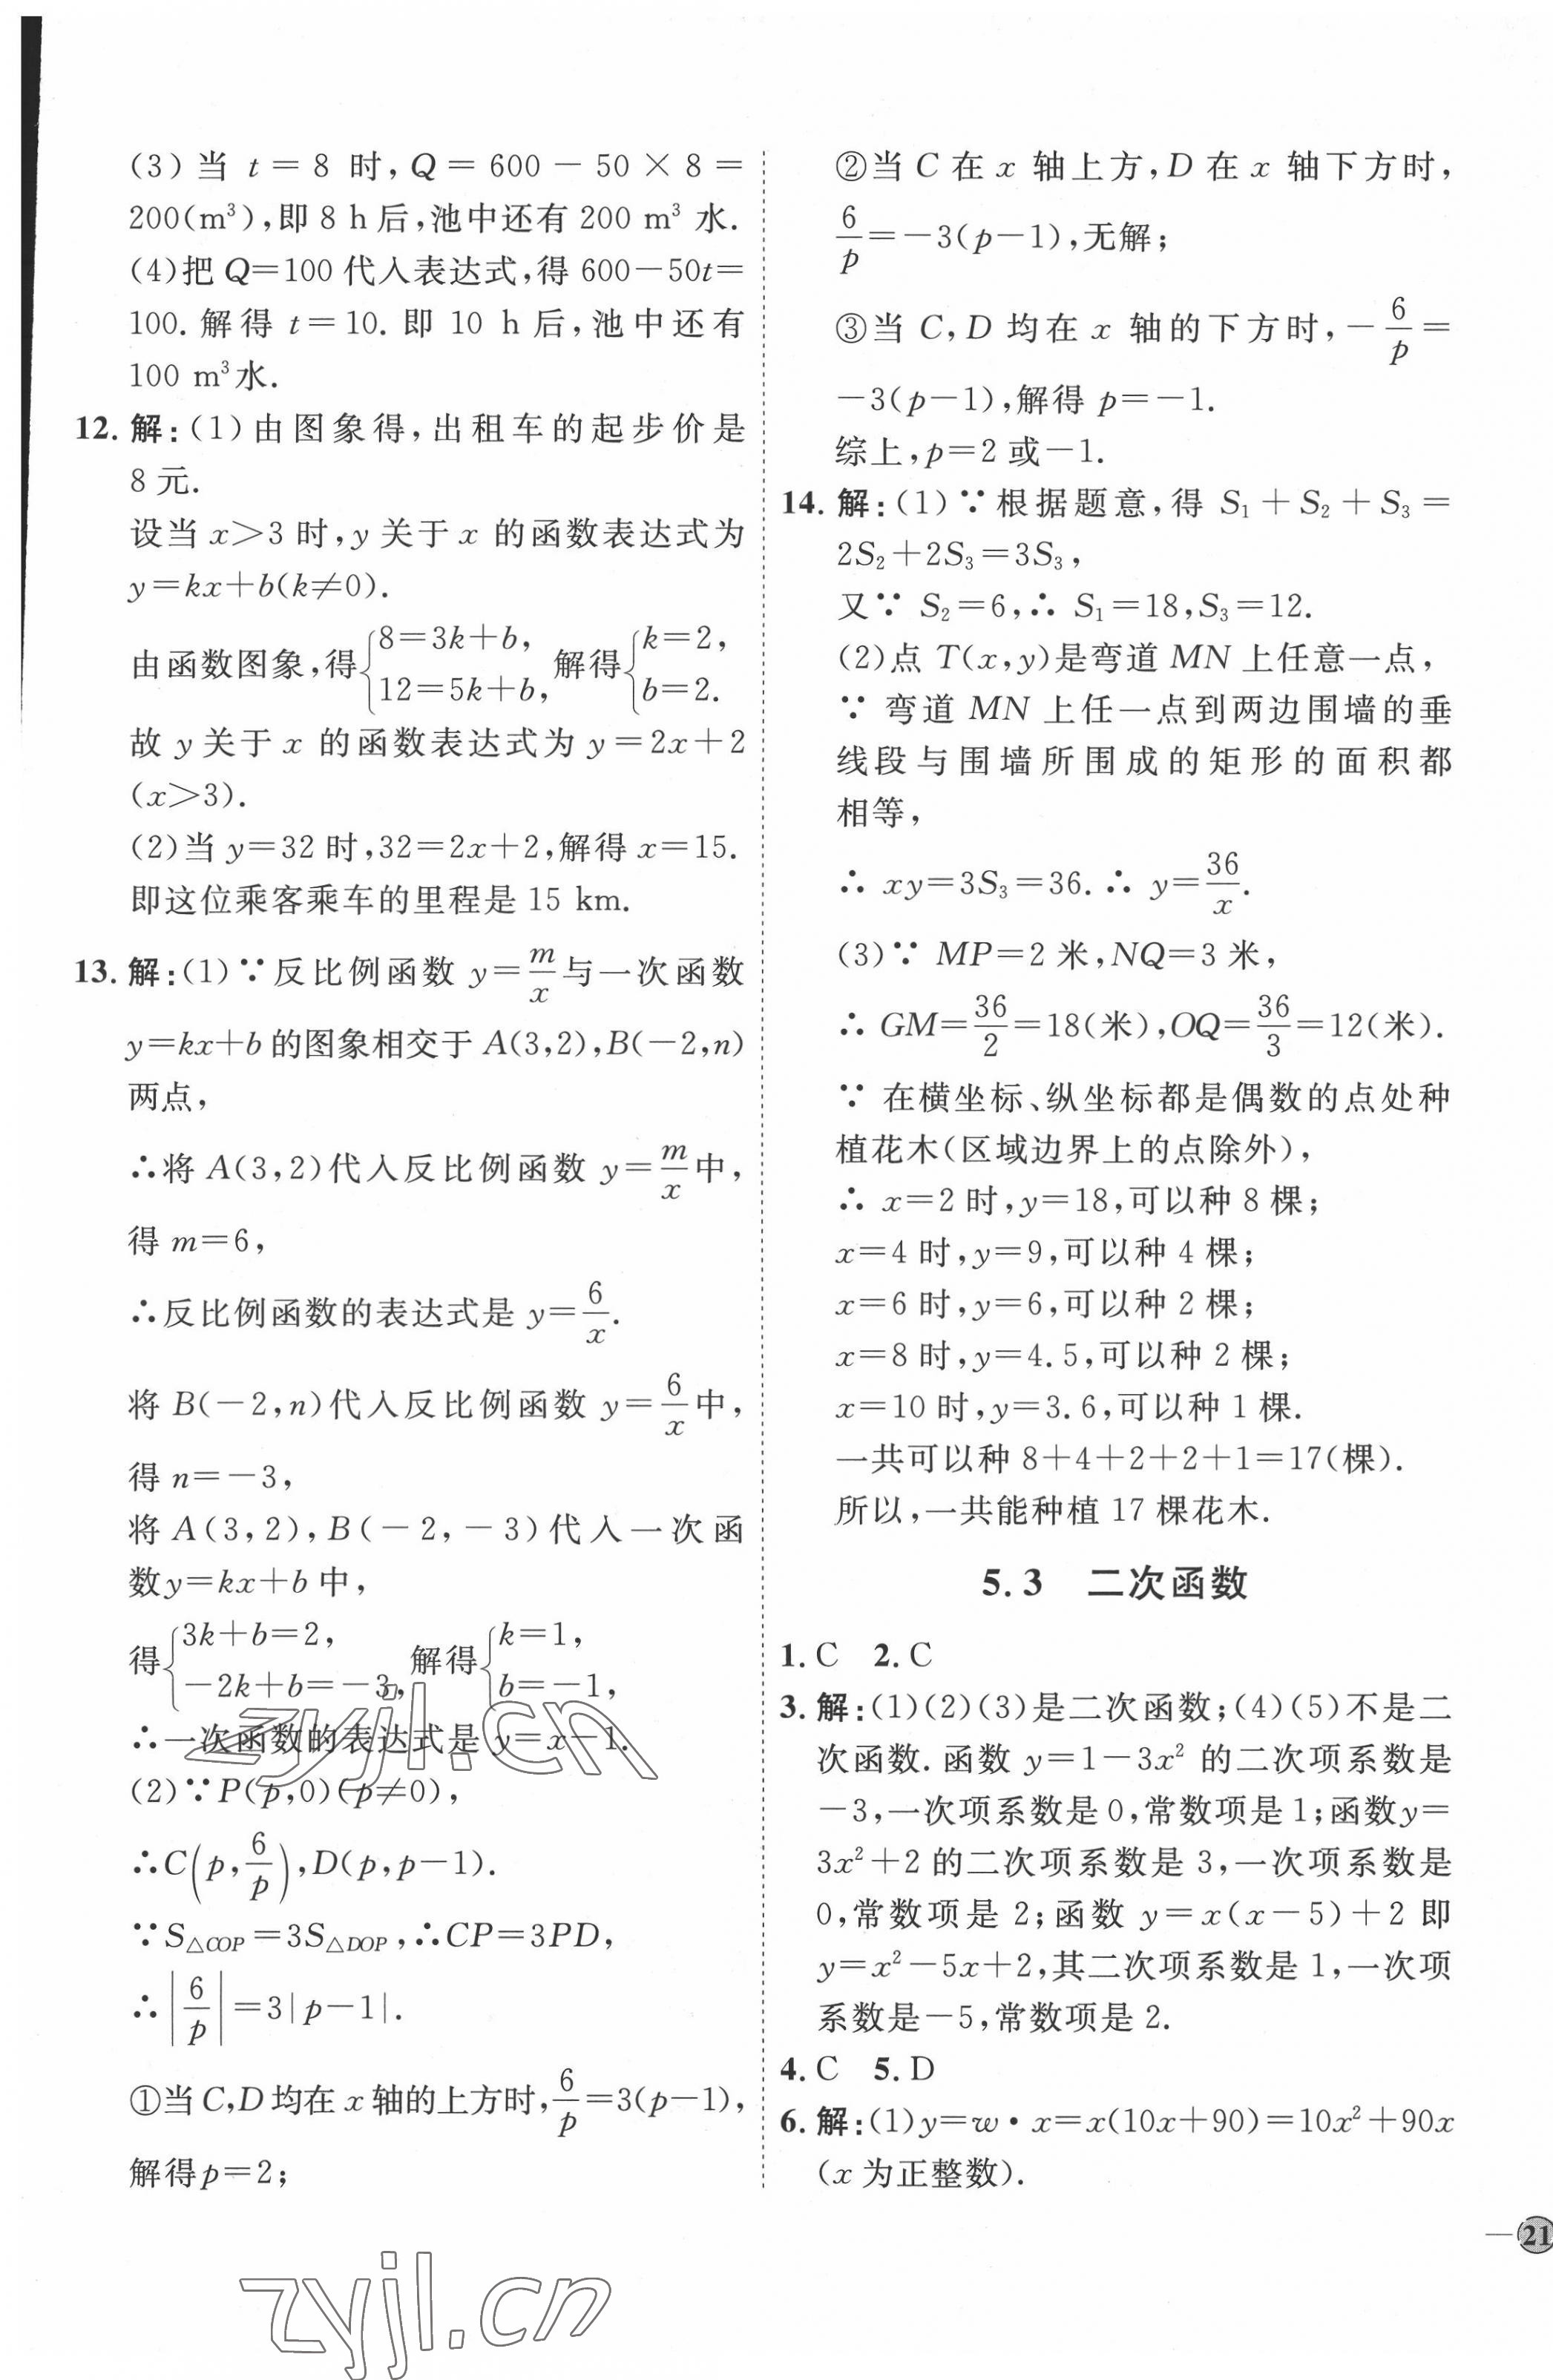 (3)当 t=8 时,Q=600-50×8=
200(m³),即 8 h后,池中还有 200 m³ 水.
(4)把 Q=100 代入表达式,得 600-50t=
100. 解得 t=10. 即 10 h 后,池中还有
100 m³水.
12. 解:(1)由图象得,出租车的起步价是
8 元.
设当 x>3 时,y 关于 x 的函数表达式为
y=kx+b(k≠0).
由函数图象,得{8=3k+b, 12=5k+b, 解得{k=2, b=2.
故 y 关于 x 的函数表达式为 y=2x+2
(x>3).
(2)当 y=32 时,32=2x+2,解得 x=15.
即这位乘客乘车的里程是 15 km.
13. 解:(1)∵反比例函数 y=m/x与一次函数
y=kx+b 的图象相交于 A(3,2),B(-2,n)
两点,
∴将 A(3,2)代入反比例函数 y=m/x中,
得 m=6,
∴反比例函数的表达式是 y=6/x.
将 B(-2,n)代入反比例函数 y=6/x中,
得 n=-3,
将 A(3,2),B(-2,-3)代入一次函
数y=kx+b 中,
得{3k+b=2, -2k+b=-3, 解得{k=1, b=-1,
∴一次函数的表达式是 y=x-1.
(2)∵P(p,0)(p≠0),
∴C(p,6/p),D(p,p-1).
∵S△COP=3S△DOP,∴CP=3PD,
∴|6/p|=3|p-1|.
①当C,D均在 x 轴的上方时,6/p=3(p-1),
解得p=2;
②当 C 在 x 轴上方,D 在 x 轴下方时,
6/p=-3(p-1),无解;
③当 C,D 均在 x 轴的下方时,-6/p=
-3(p-1),解得 p=-1.
综上,p=2 或-1.
14. 解:(1)∵根据题意,得 S₁+S₂+S₃=
2S₂+2S₃=3S₃,
又∵ S₂=6,∴ S₁=18,S₃=12.
(2)点 T(x,y)是弯道 MN 上任意一点,
∵ 弯道 MN 上任一点到两边围墙的垂
线段与围墙所围成的矩形的面积都
相等,
∴ xy=3S₃=36.∴ y=36/x.
(3)∵ MP=2 米,NQ=3 米,
∴ GM=36/2=18(米),OQ=36/3=12(米).
∵ 在横坐标、纵坐标都是偶数的点处种
植花木(区域边界上的点除外),
∴ x=2 时,y=18,可以种 8 棵;
x=4 时,y=9,可以种 4 棵;
x=6 时,y=6,可以种 2 棵;
x=8 时,y=4.5,可以种 2 棵;
x=10 时,y=3.6,可以种 1 棵.
一共可以种 8+4+2+2+1=17(棵).
所以,一共能种植 17 棵花木.
5.3 二次函数
1. C 2. C
3. 解:(1)(2)(3)是二次函数;(4)(5)不是二
次函数. 函数 y=1-3x² 的二次项系数是
-3,一次项系数是 0,常数项是 1;函数y=
3x²+2 的二次项系数是 3,一次项系数是
0,常数项是 2;函数 y=x(x-5)+2 即
y=x²-5x+2,其二次项系数是 1,一次项
系数是-5,常数项是 2.
4. C 5. D
6. 解:(1)y=w·x=x(10x+90)=10x²+90x
(x 为正整数).
21
zyjl.cn
zyjl.cn